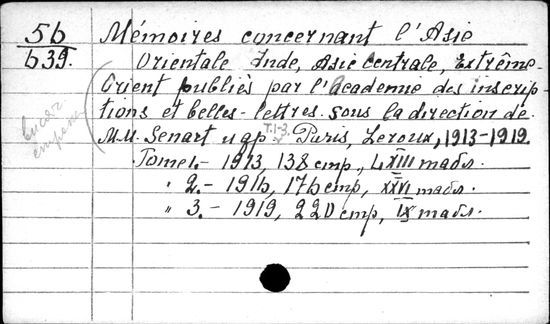 5б
b39.
Mémoires concernant l'Asie
Orientale Inde, Asie Centrale, Extrême-
Orient publiés par l'Academie des inscrip-
tions et belles-lettres. sous la direction de
M.M. Senart и др. T.1-3. Paris, Leroux, 1913-1919.
Tome 1.- 1913, 138 стр., LXIII табл.
" 2.- 1916, 176 стр, XXVI табл.
" 3.- 1919, 220 стр, IX табл.